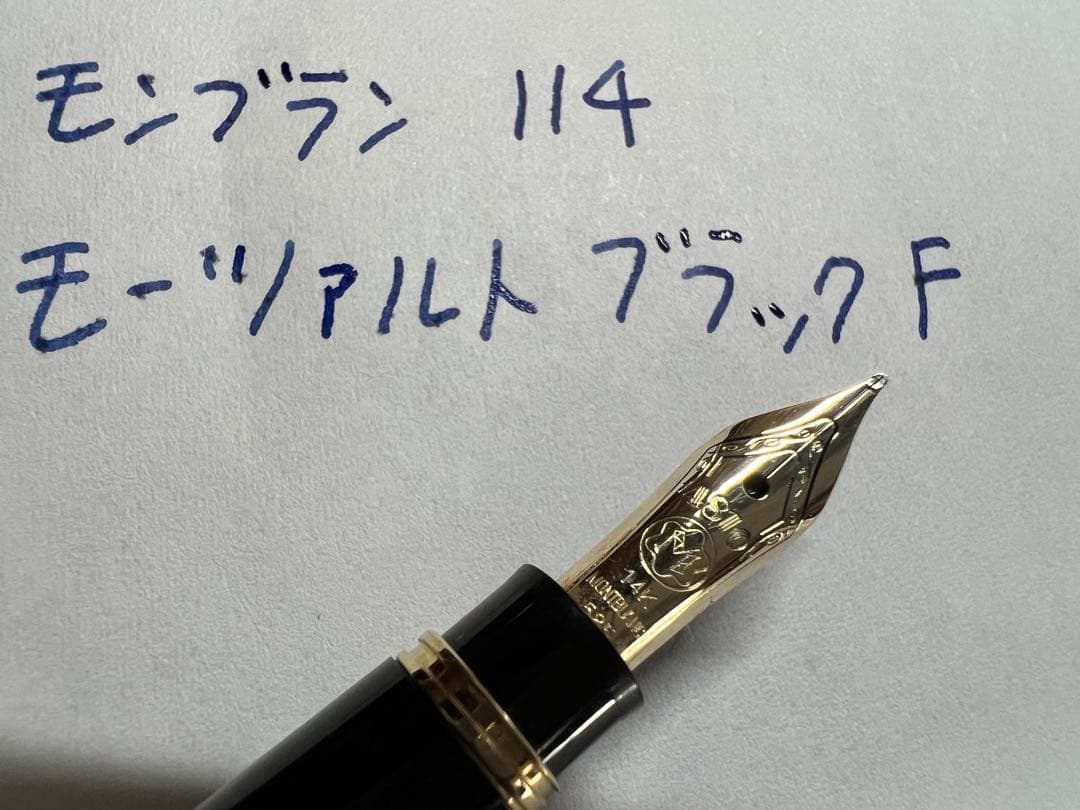 モンブラン 114
モーツァルト ブラック F
4810
14K
MONTBLANC
585